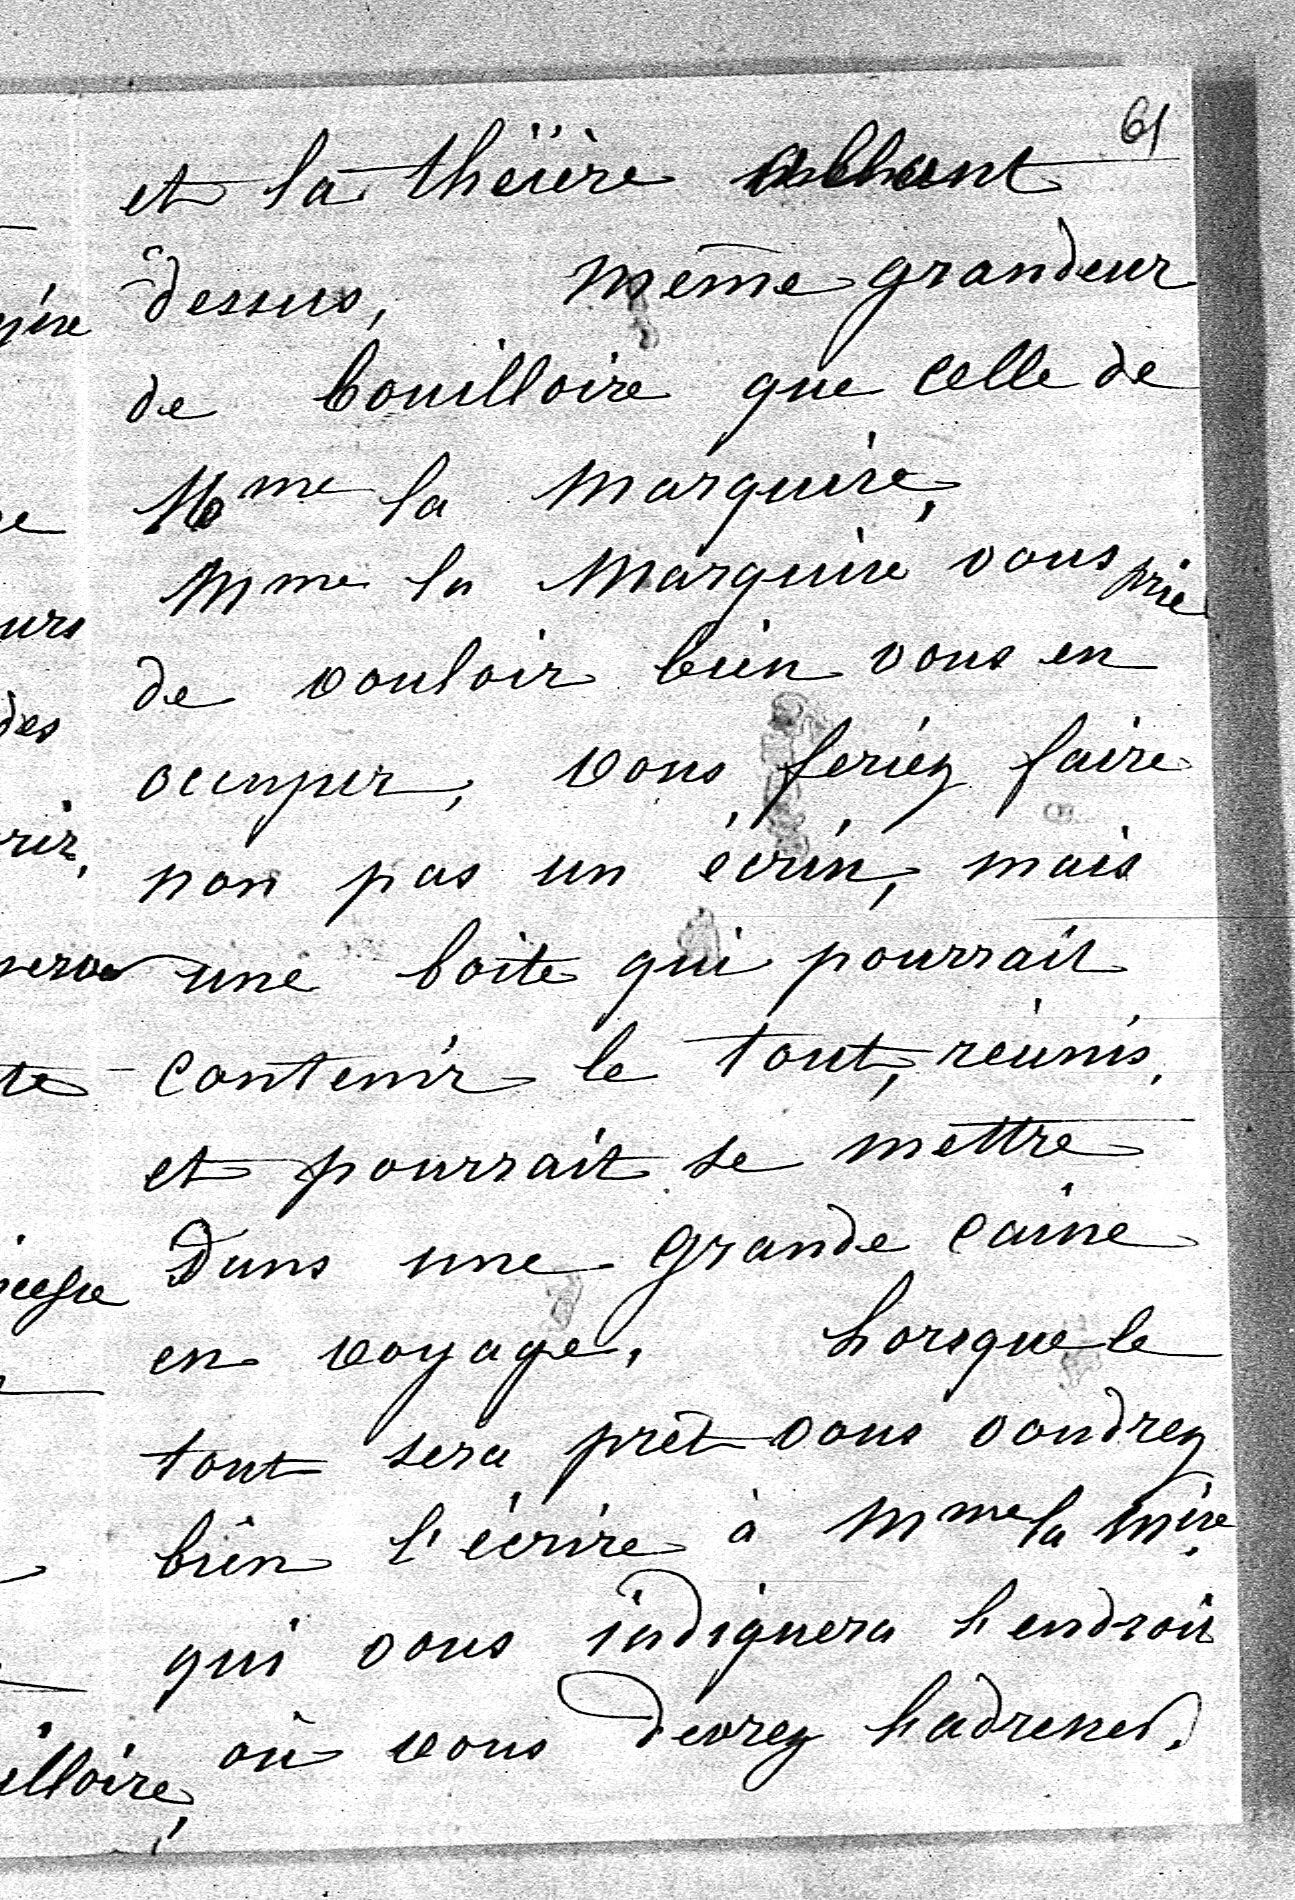 61
et la théière allant
dessus, même grandeur
de bouilloire que celle de
Mme la Marquise,
Mme la Marquise vous prie
de vouloir bien vous en
occuper, vous feriez faire
non pas un écrin, mais
une boite qui pourrait
contenir le tout, réunis,
et pourrait se mettre
Dans une grande caisse
en voyage, Lorsque le
tout sera prêt vous voudrez
bien l'écrire à Mme la Mise
qui vous indiquera l'endroit
où vous devrez l'adresser.
urs
des
rir,
te
illoire,